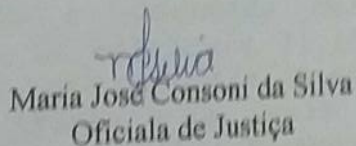 Maria José Consoni da Silva
Oficiala de Justiça